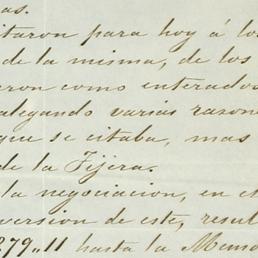 as.
itaron para hoy á los
de la misma, de los
eron como enterados
alegando varias razone
que se citaba, mas
de la Tijera.
la negociacion, en el
version de este, resul
279,,11 hasta la Memo